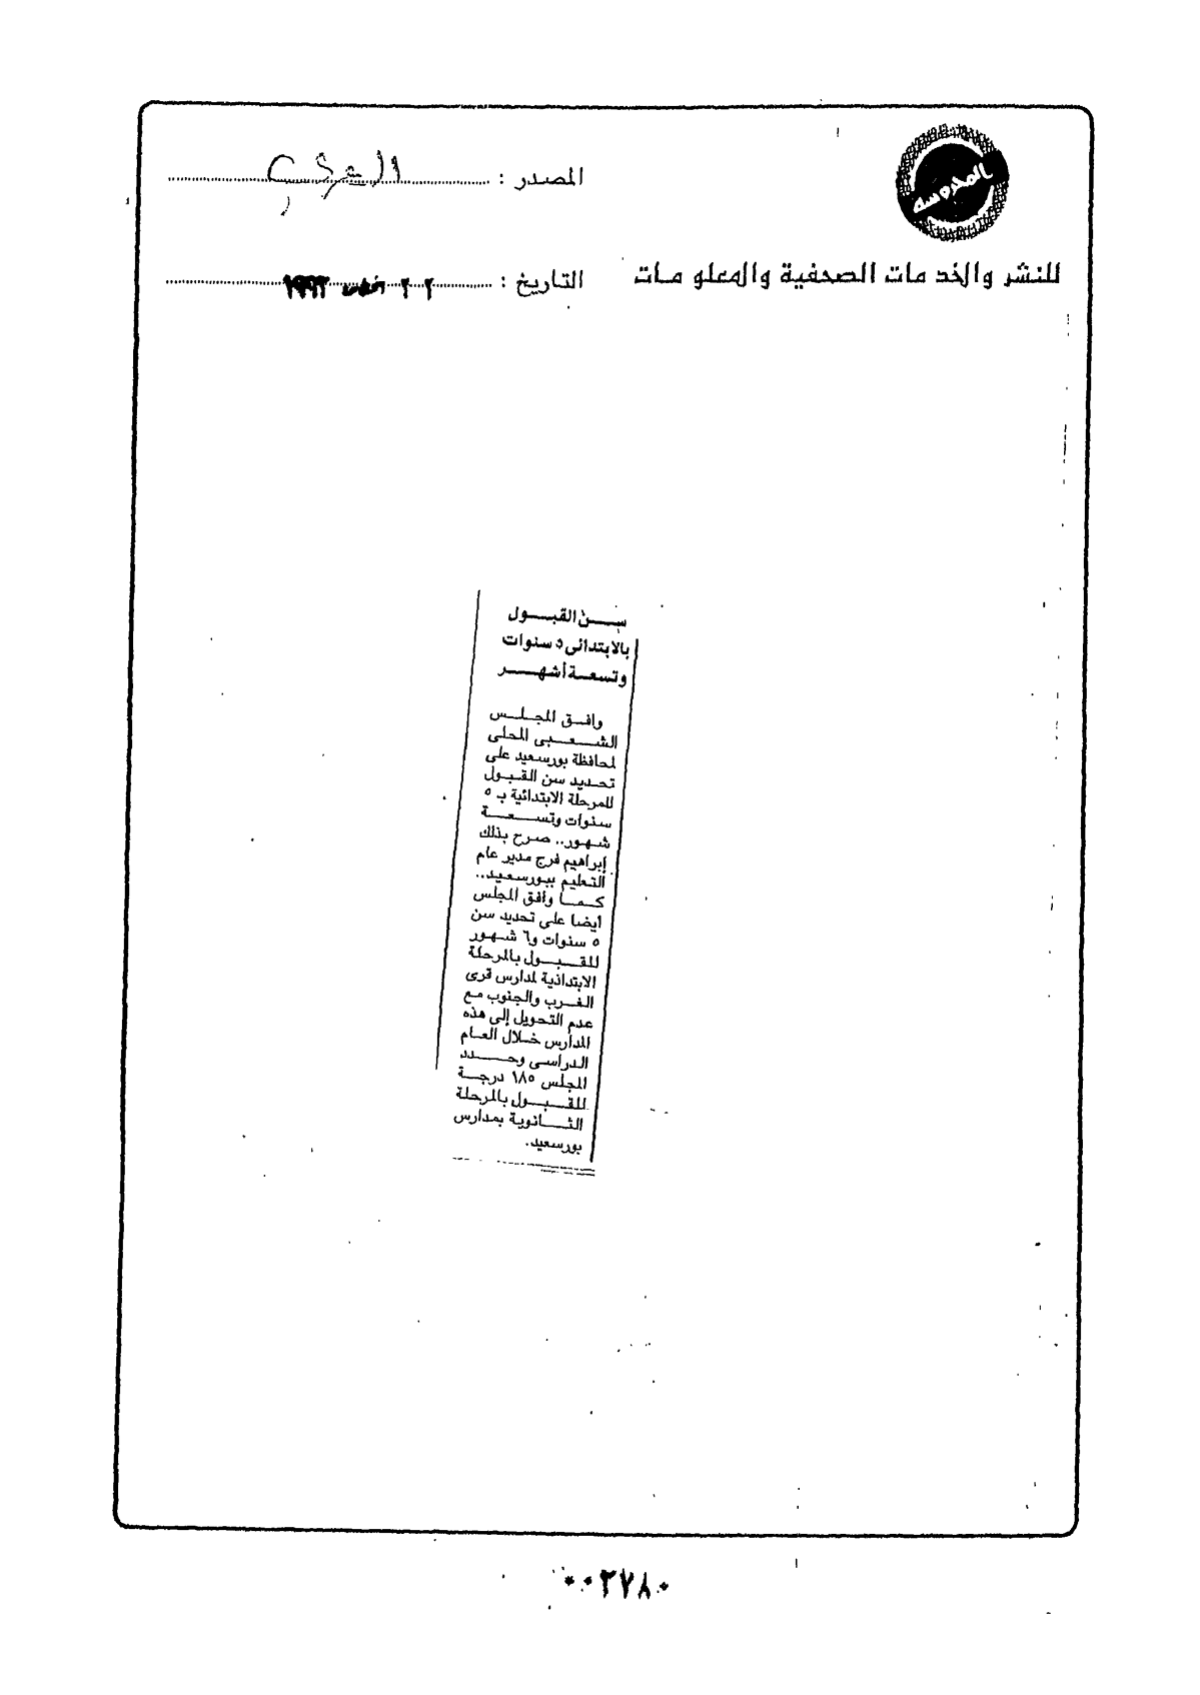 المحروسة
المصدر : العربى
للنشر والخدمات الصحفية والمعلومات
التاريخ : ٢٢ ١٩٩٣
ســـن القبـــول
بالابتدائى ٥ سنوات
وتسعــة أشهـــر
وافـق المجلـس
الشـعـبـى المحلى
لمحافظة بورسعيد على
تحـديـد سن القـبـول
للمرحلة الابتدائية بـ ٥
سنوات وتســعــة
شهـور.. صرح بذلك
إبراهيم فرج مدير عام
التعليم ببورسعيد..
كـمـا وافق المجلس
أيضا على تحديد سن
٥ سنوات و٦ شهـور
للقـبـول بالمرحلة
الابتدائية لمدارس قرى
الغـرب والجنوب مـع
عدم التحويل إلى هذه
المدارس خـلال العـام
الـدراسى وحـــدد
المجلس ١٨٥ درجـة
للقـبـول بالمرحلة
الثــانوية بمدارس
بورسعيد.
٠٠٣٧٨٠